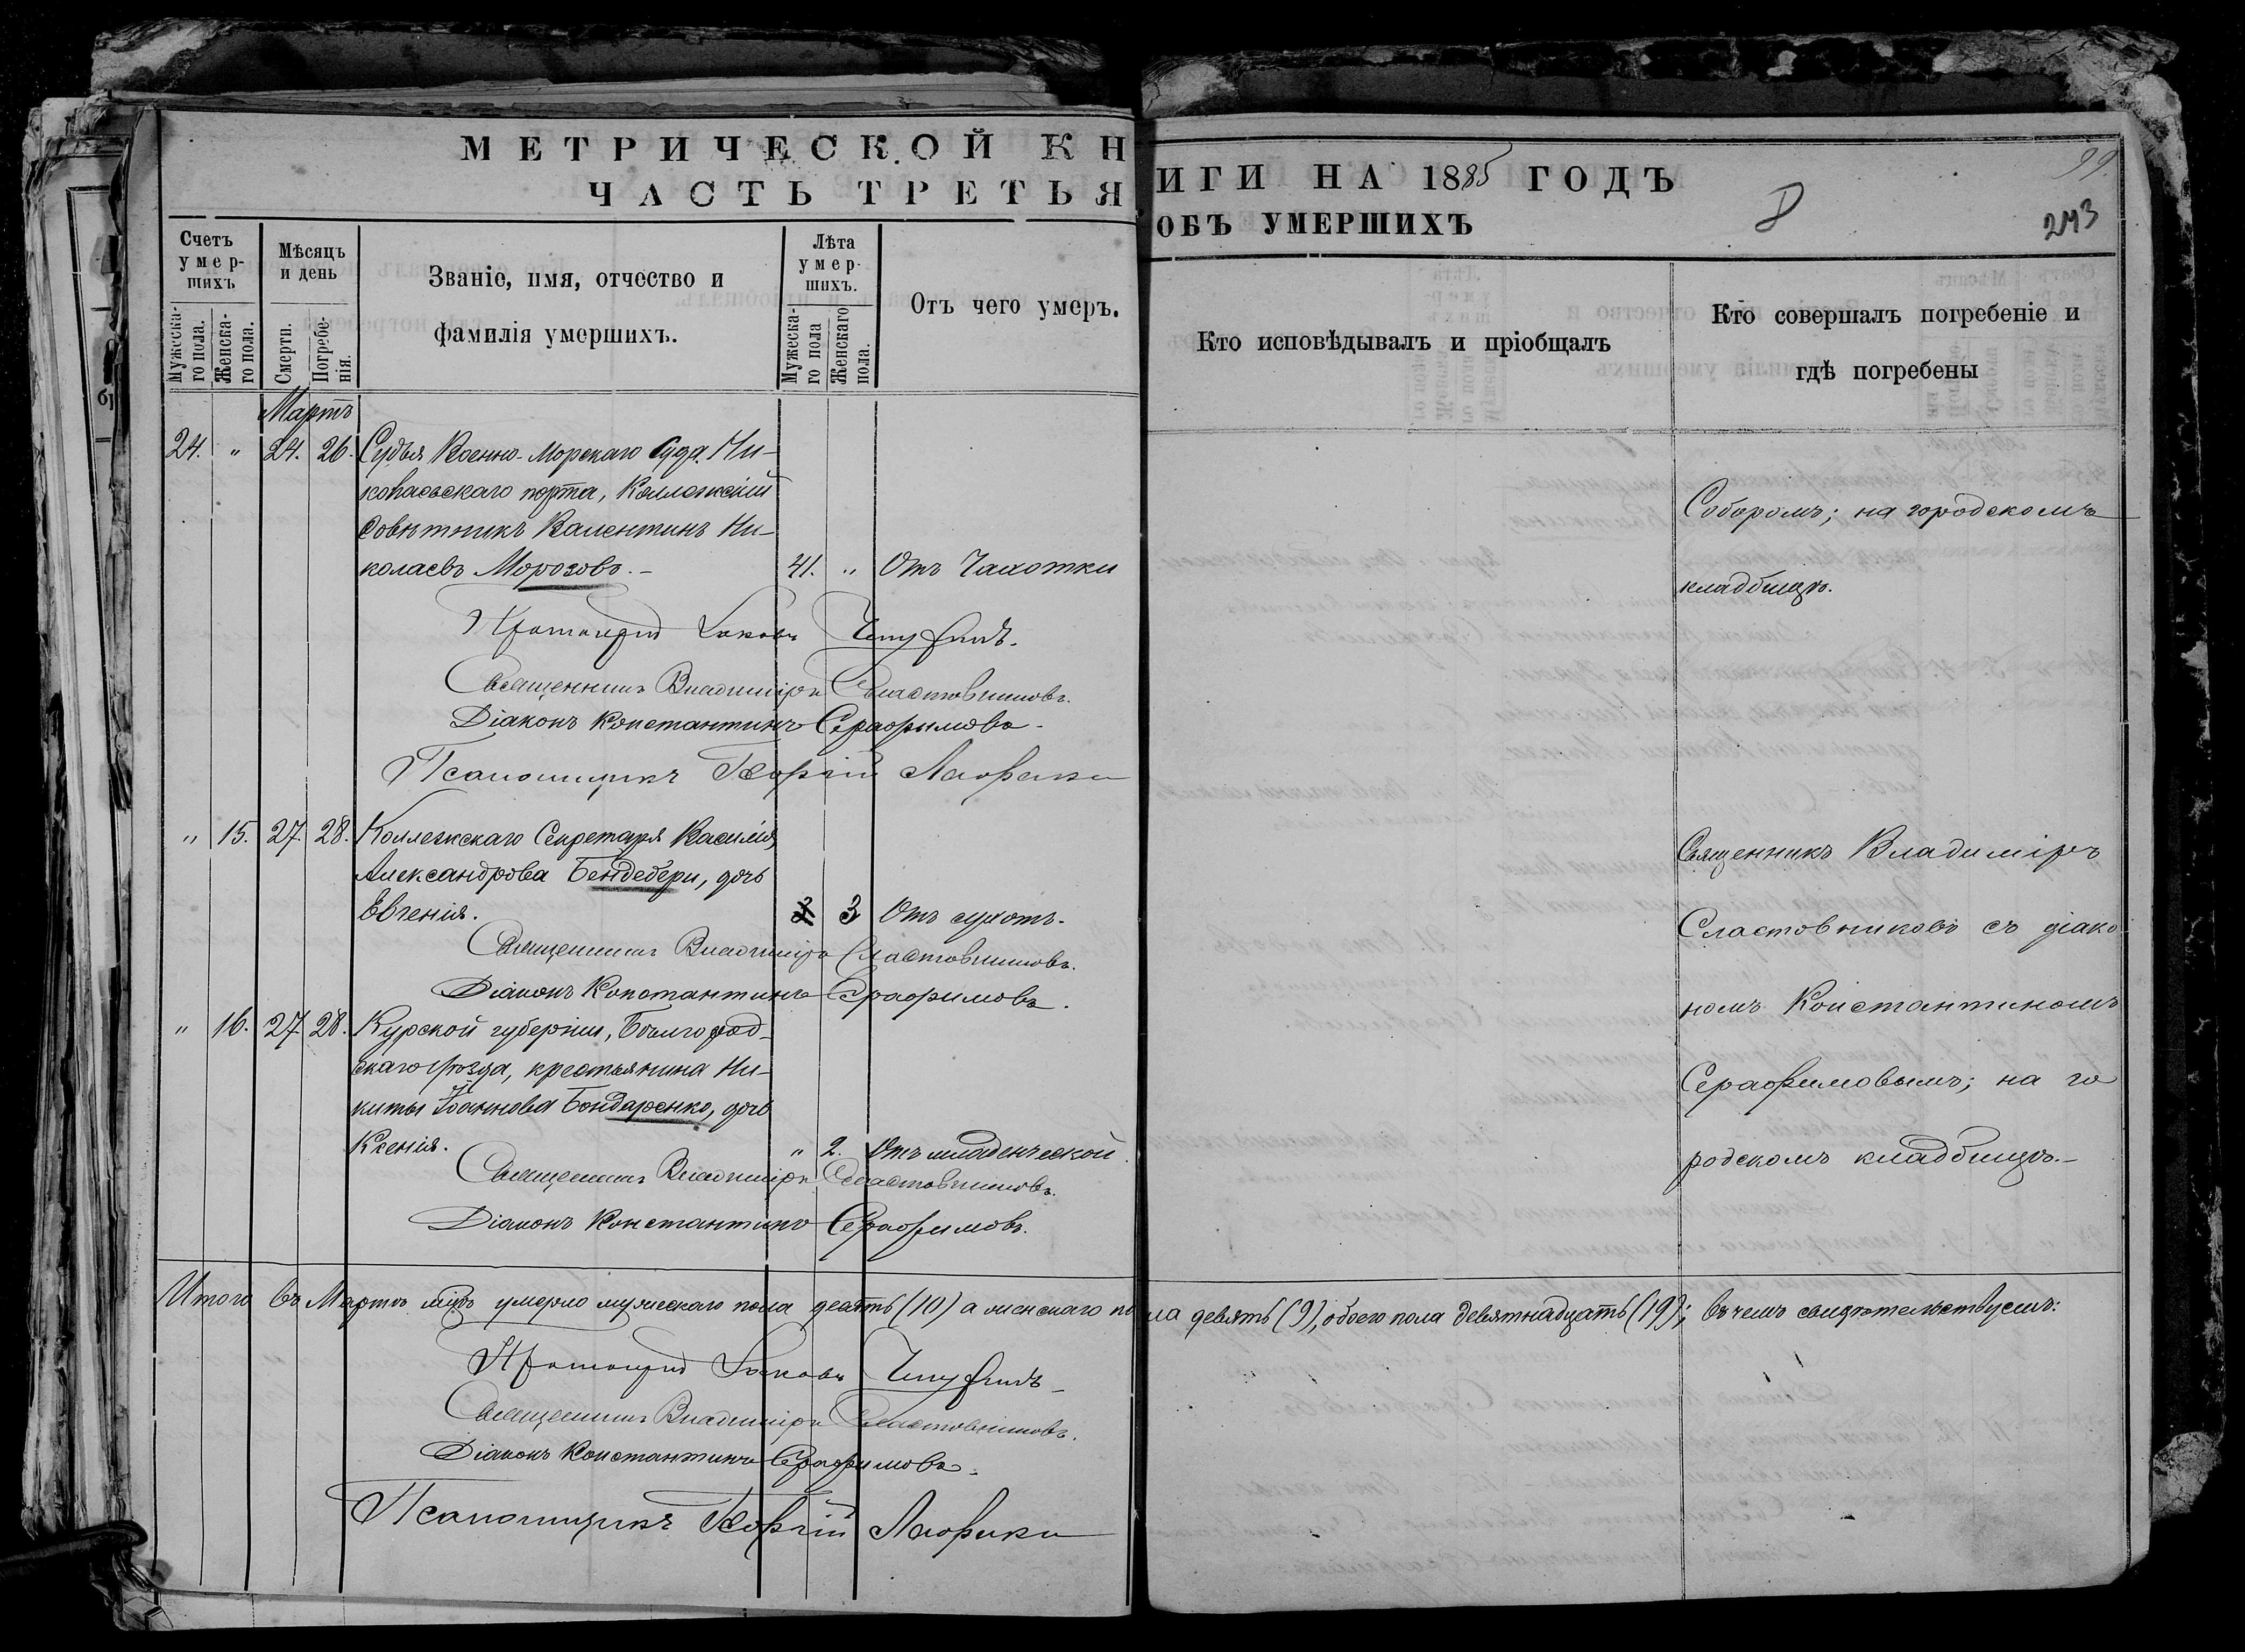 МЕТРИЧЕСКОЙ КНИГИ НА 1885 ГОДЪ
ЧАСТЬ ТРЕТЬЯ ОБЪ УМЕРШИХЪ
99.
243
Счетъ умер-шихъ
Мужеска-го пола.
Женска-го пола.
Мѣсяцъ и день
Смерти.
Погребе-нія.
Званіе, имя, отчество и
фамилія умершихъ.
Лѣта умер-шихъ.
Мужеска-го пола
Женскаго пола.
Отъ чего умеръ.
Кто исповѣдывалъ и пріобщалъ
Кто совершалъ погребеніе и
гдѣ погребены
Мартъ
24. " 24. 26. Судья Военно-Морскаго Суда Ни-
колаевскаго порта, Коллежскій
Совѣтникъ Валентинъ Ни-
колаевъ Морозовъ. – 41. " Отъ Чахотки
Соборомъ; на городскомъ
кладбищѣ.
Протоіерей Іаковъ
Священникъ Владиміръ Сластовниковъ.
Діаконъ Константинъ Серафимовъ.
Псаломщикъ Георгій
" 15. 27. 28. Коллежскаго Секретаря Василія
Александрова Бендебери, дочь
Евгенія. 3 Отъ сухотъ.
Священникъ Владиміръ Сластовниковъ.
Діаконъ Константинъ Серафимовъ.
Священникъ Владиміръ
Сластовниковъ съ діако
номъ Константиномъ
Серафимовымъ; на го
родскомъ кладбищѣ.–
" 16. 27. 28. Курской губерніи, Бѣлгород-
скаго уѣзда, крестьянина Ни-
киты Іоаннова Бондаренко, дочь
Ксенія. " 2. Отъ младенческой.
Священникъ Владиміръ Сластовниковъ.
Діаконъ Константинъ Серафимовъ.
Итого въ Мартѣ м҃цѣ умерло мужескаго пола десять (10) а женскаго пола девять (9), обоего пола девятнадцать (19); въ чемъ свидѣтельствуемъ:
Протоіерей Іаковъ
Священникъ Владиміръ Сластовниковъ.
Діаконъ Константинъ Серафимовъ.
Псаломщикъ Георгій